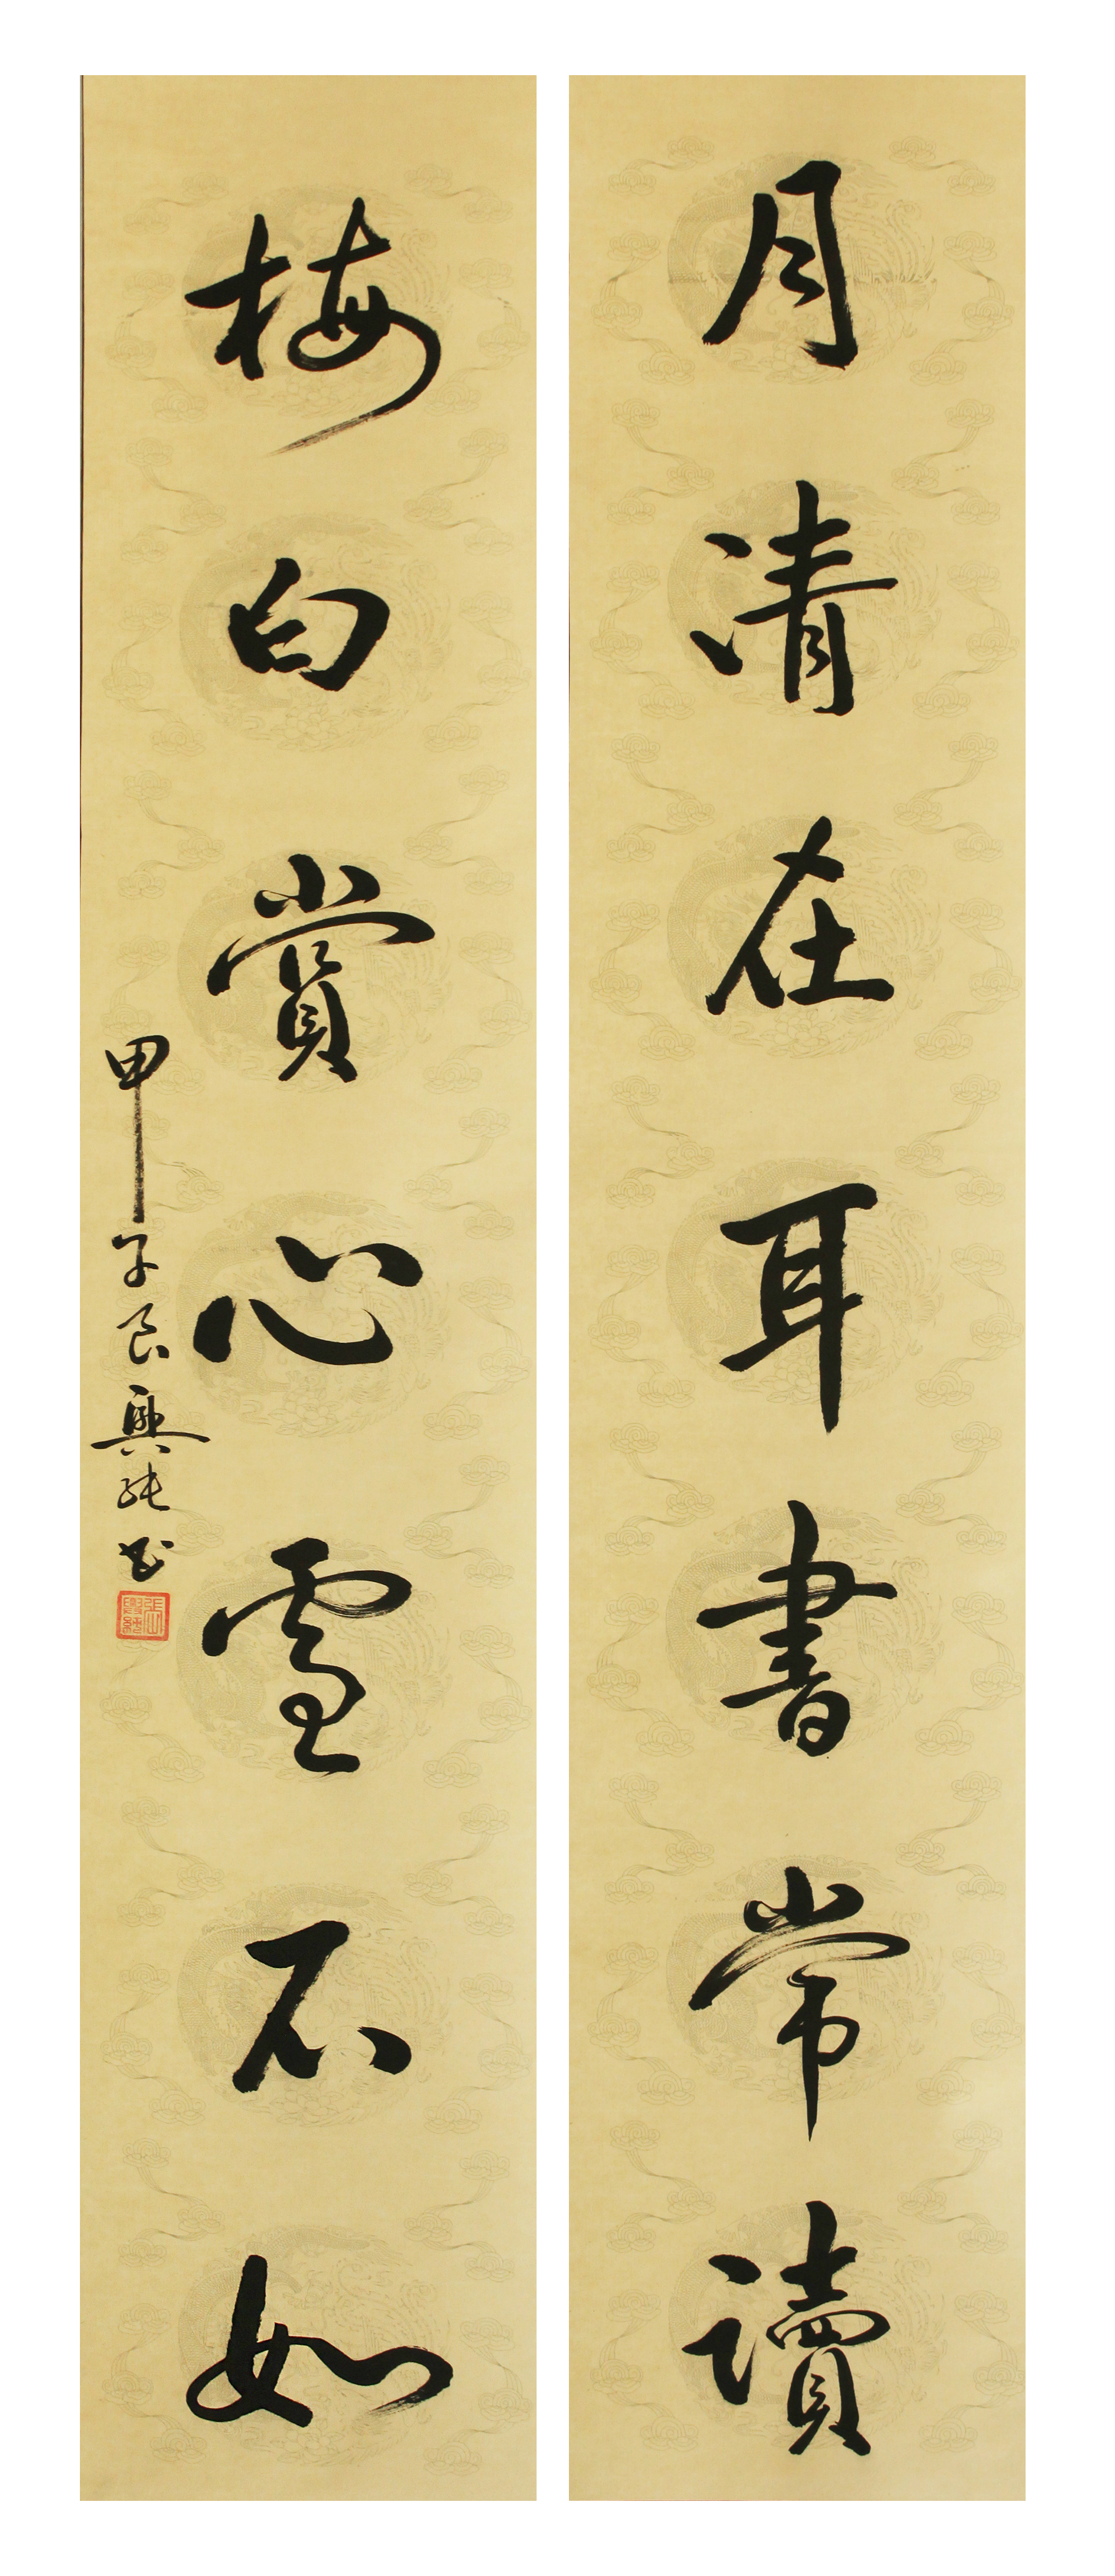 月清在耳書常讀
梅白賞心雪不如
甲子良興純书